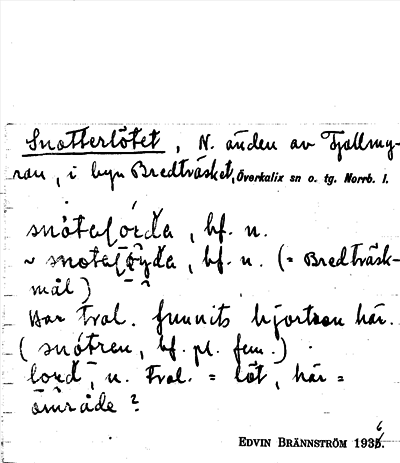 Snotterlötet, N. änden av Tjallmy-
ran, i byn Bredträsket, Överkalix sn o. tg. Norrb. l.
bf. n.
~ bf. n. (= Bredträsk-
mål)
Har tral. funnits hjortron här.
(snótren, bf. pl. fem.)
n. tral. = löt, här =
område?
EDVIN BRÄNNSTRÖM 1936.